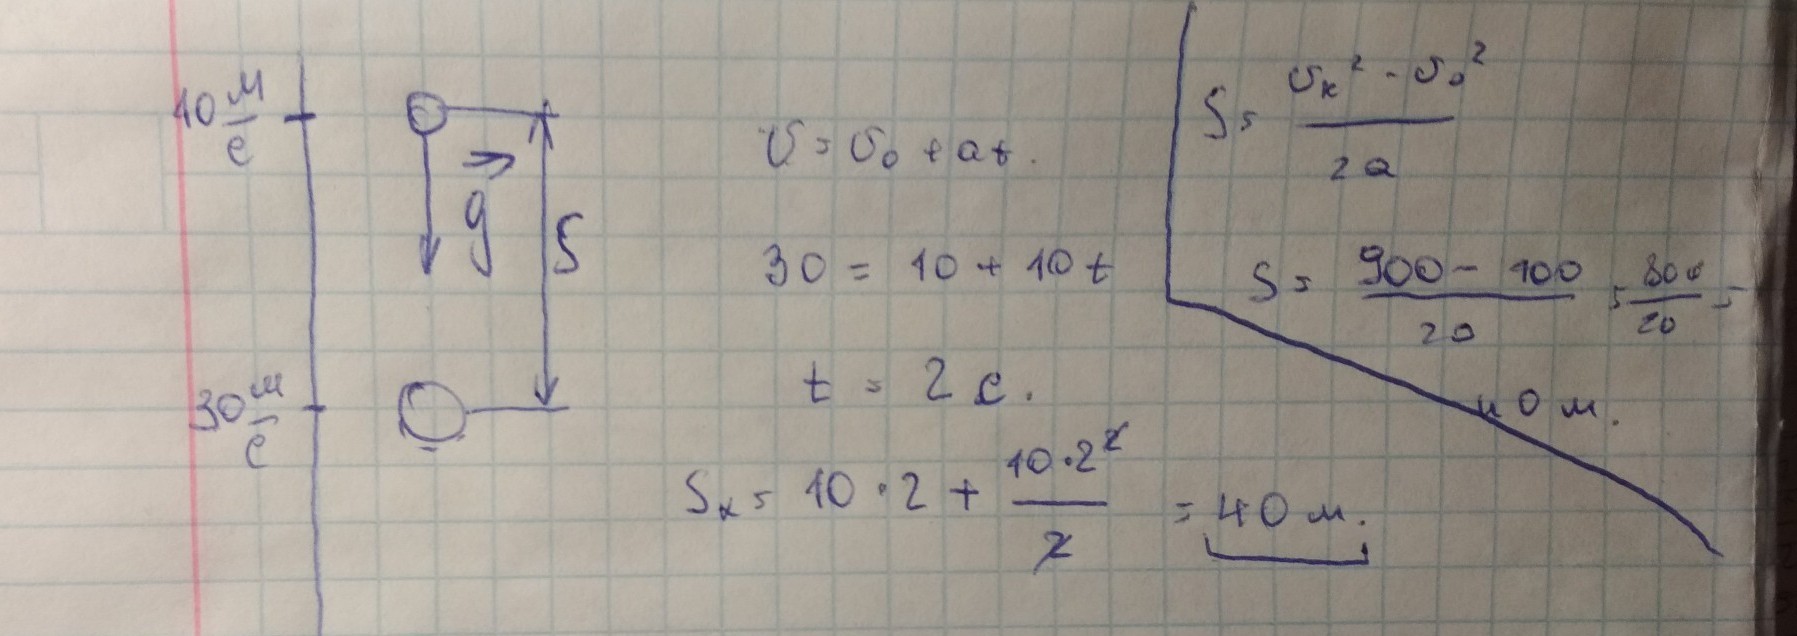 10 м/с
g⃗
S
30 м/с
υ = υ₀ + at.
30 = 10 + 10t
t = 2 с.
Sₓ = 10 · 2 + (10 · 2²)/2 = 40 м.
S = (υₖ² - υ₀²)/2a
S = (900 - 100)/20 = 800/20 =
40 м.